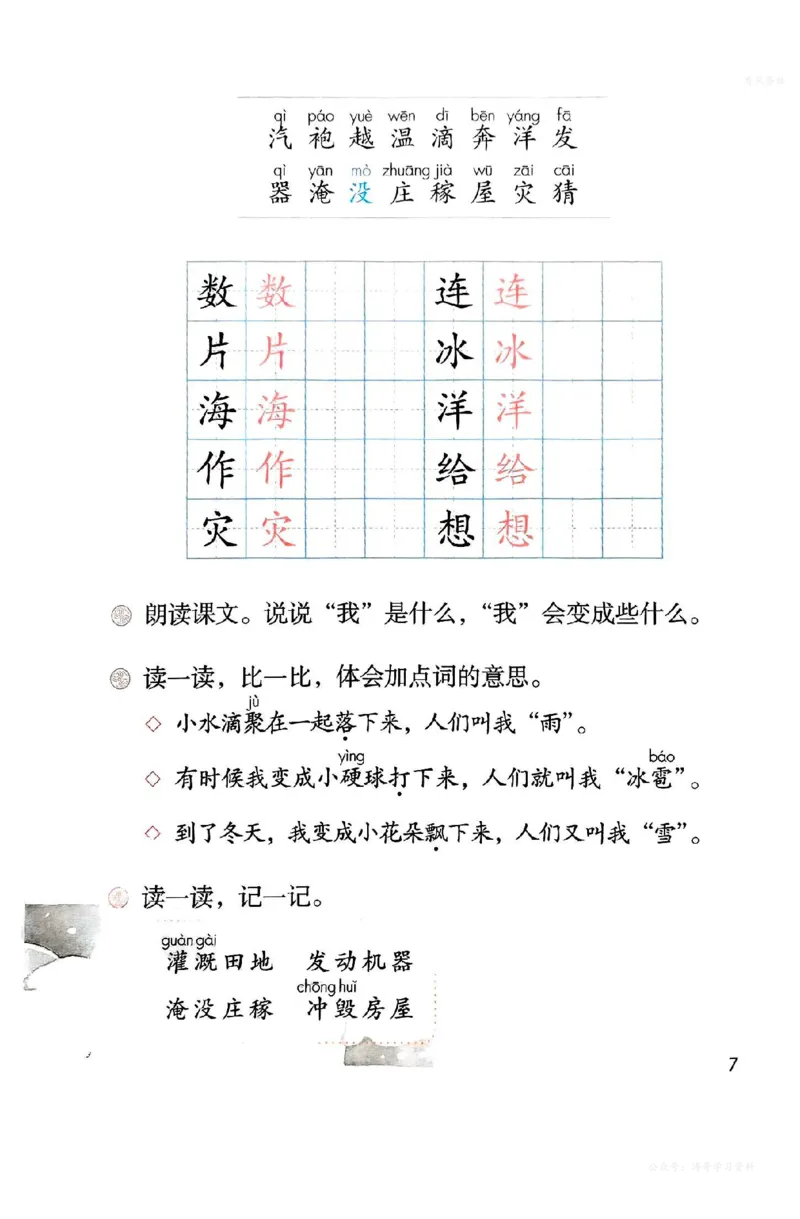 qì páo yuè wēn dī bēn yáng fā
汽 袍 越 温 滴 奔 洋 发
qì yān mò zhuāng jià wū zāi cāi
器 淹 没 庄 稼 屋 灾 猜
数 数 连 连
片 片 冰 冰
海 海 洋 洋
作 作 给 给
灾 灾 想 想
朗读课文。说说“我”是什么，“我”会变成些什么。
读一读，比一比，体会加点词的意思。
jù
小水滴聚在一起落下来，人们叫我“雨”。
yìng báo
有时候我变成小硬球打下来，人们就叫我“冰雹”。
到了冬天，我变成小花朵飘下来，人们又叫我“雪”。
读一读，记一记。
guàn gài
灌溉田地 发动机器
chōng huǐ
淹没庄稼 冲毁房屋
7